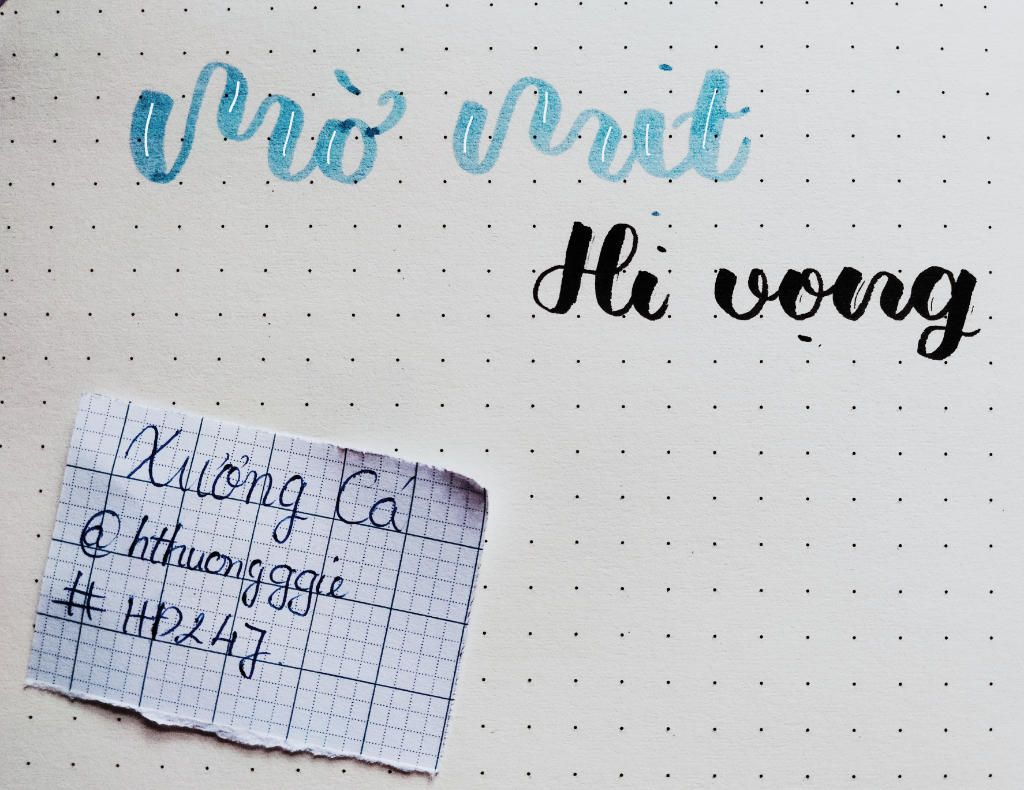 Mờ mịt
Hi vọng
Xưởng Cá
@hthuongggie
# HĐ247